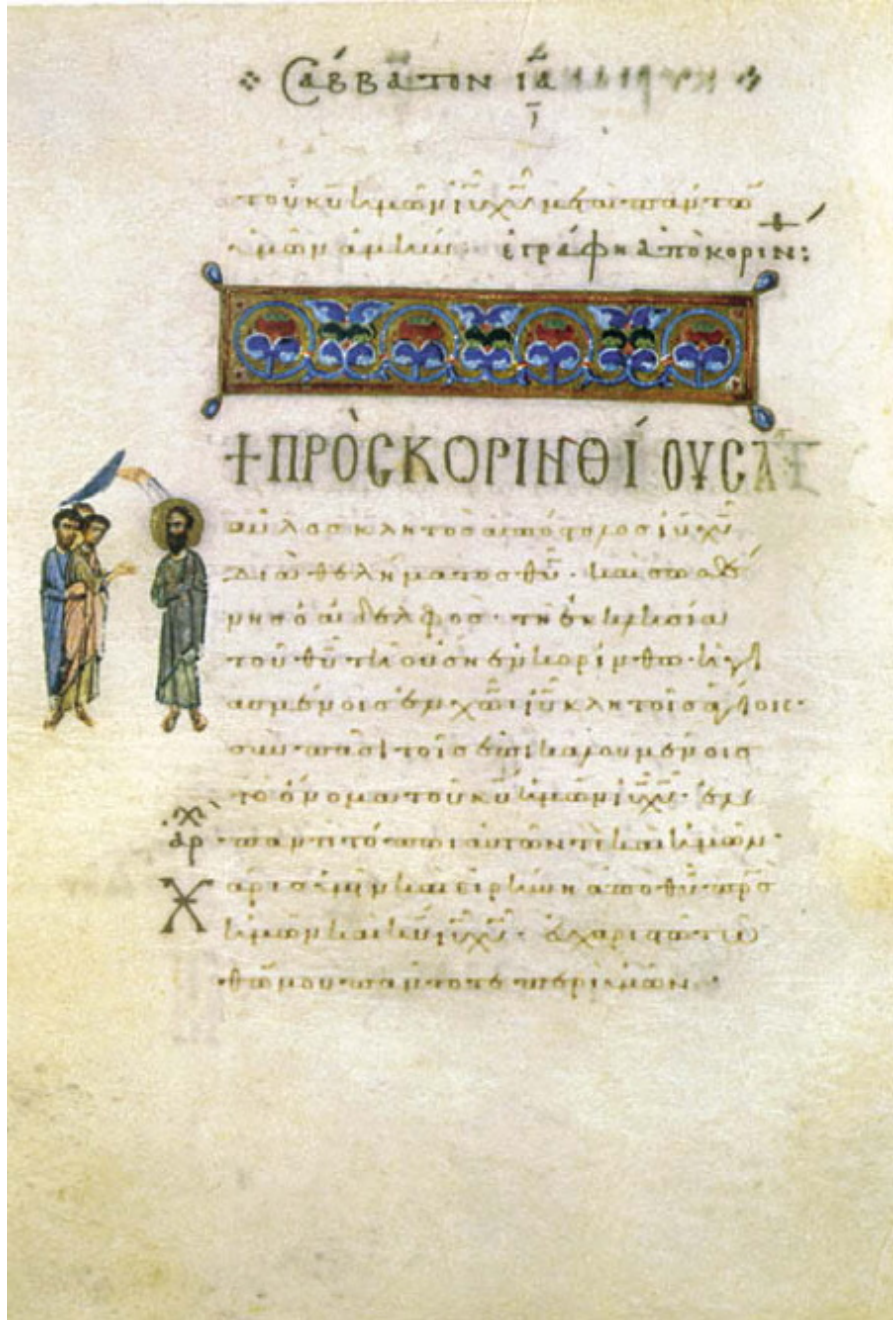 Σαββάτον ϊα
ϊ
τοῦ κυ ἡμῶν ιυ χυ μετα παντω
ἡμῶν ἀμήν: ἐγράφη ἀπὸ κοριν:
+ ΠΡῸC ΚΟΡΙΝΘΊΟΥC Α
αυλοσ κλητοσ αποστολοσ ιυ χυ
δια θεληματοσ θυ · και σωσθέ
νησ ὁ ἀδελφοσ · τῆ ἐκκλησία
τοῦ θυ τῆ οὔση ἐν κορίνθω · ἡγι
ασμένοισ ἐν χω ιυ κλητοῖσ ἁγίοισ ·
συν πᾶσι τοῖσ ἐπικαλουμένοισ
το ὄνομα τοῦ κυ ἡμῶν ιυ χυ · ἐν
ἀρ
παντὶ τόπω αυτῶν τὲ καὶ ἡμῶν ·
Χ αρισ ὑμῖν και ειρήνη απο θυ πρσ
ἡμῶν καὶ κυ ιυ χυ · ευχαριστῶ τῶ
θω μου παντοτε περι ὑμῶν ·